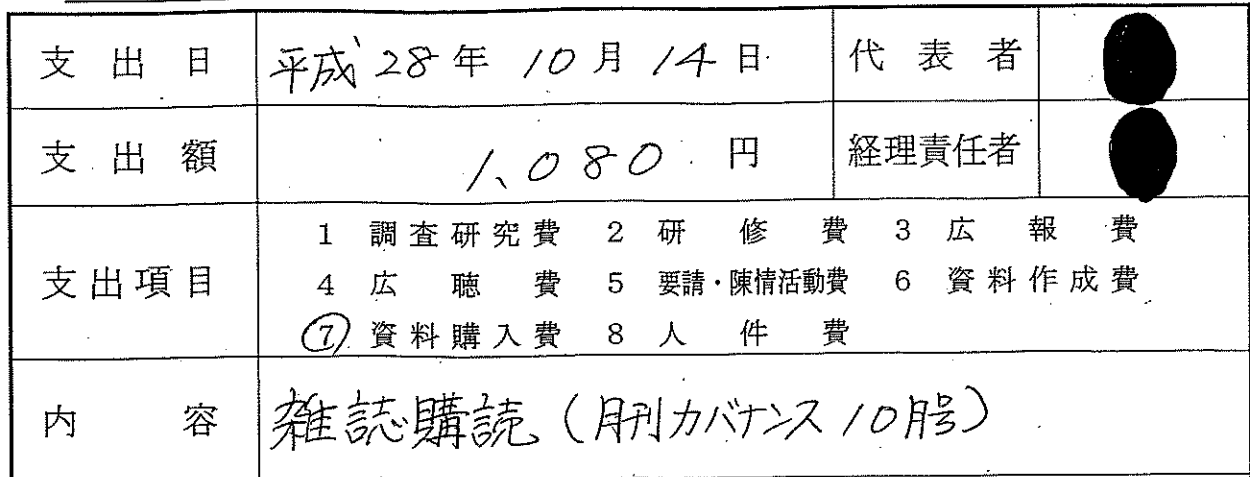 支出日 平成28年10月14日 代表者
支出額 1,080円 経理責任者
1 調査研究費 2 研修費 3 広報費
支出項目 4 広聴費 5 要請・陳情活動費 6 資料作成費
⑦ 資料購入費 8 人件費
内容 雑誌購読(月刊カバナンス10月号)